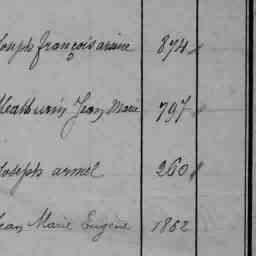 Joseph françois arsène 874
Mathurin Jean Marie 797
Joseph armel 260
Jean Marie Eugène 1862